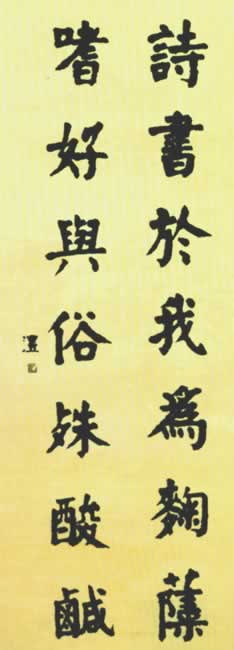 詩書於我為麴蘖
嗜好與俗殊酸鹹